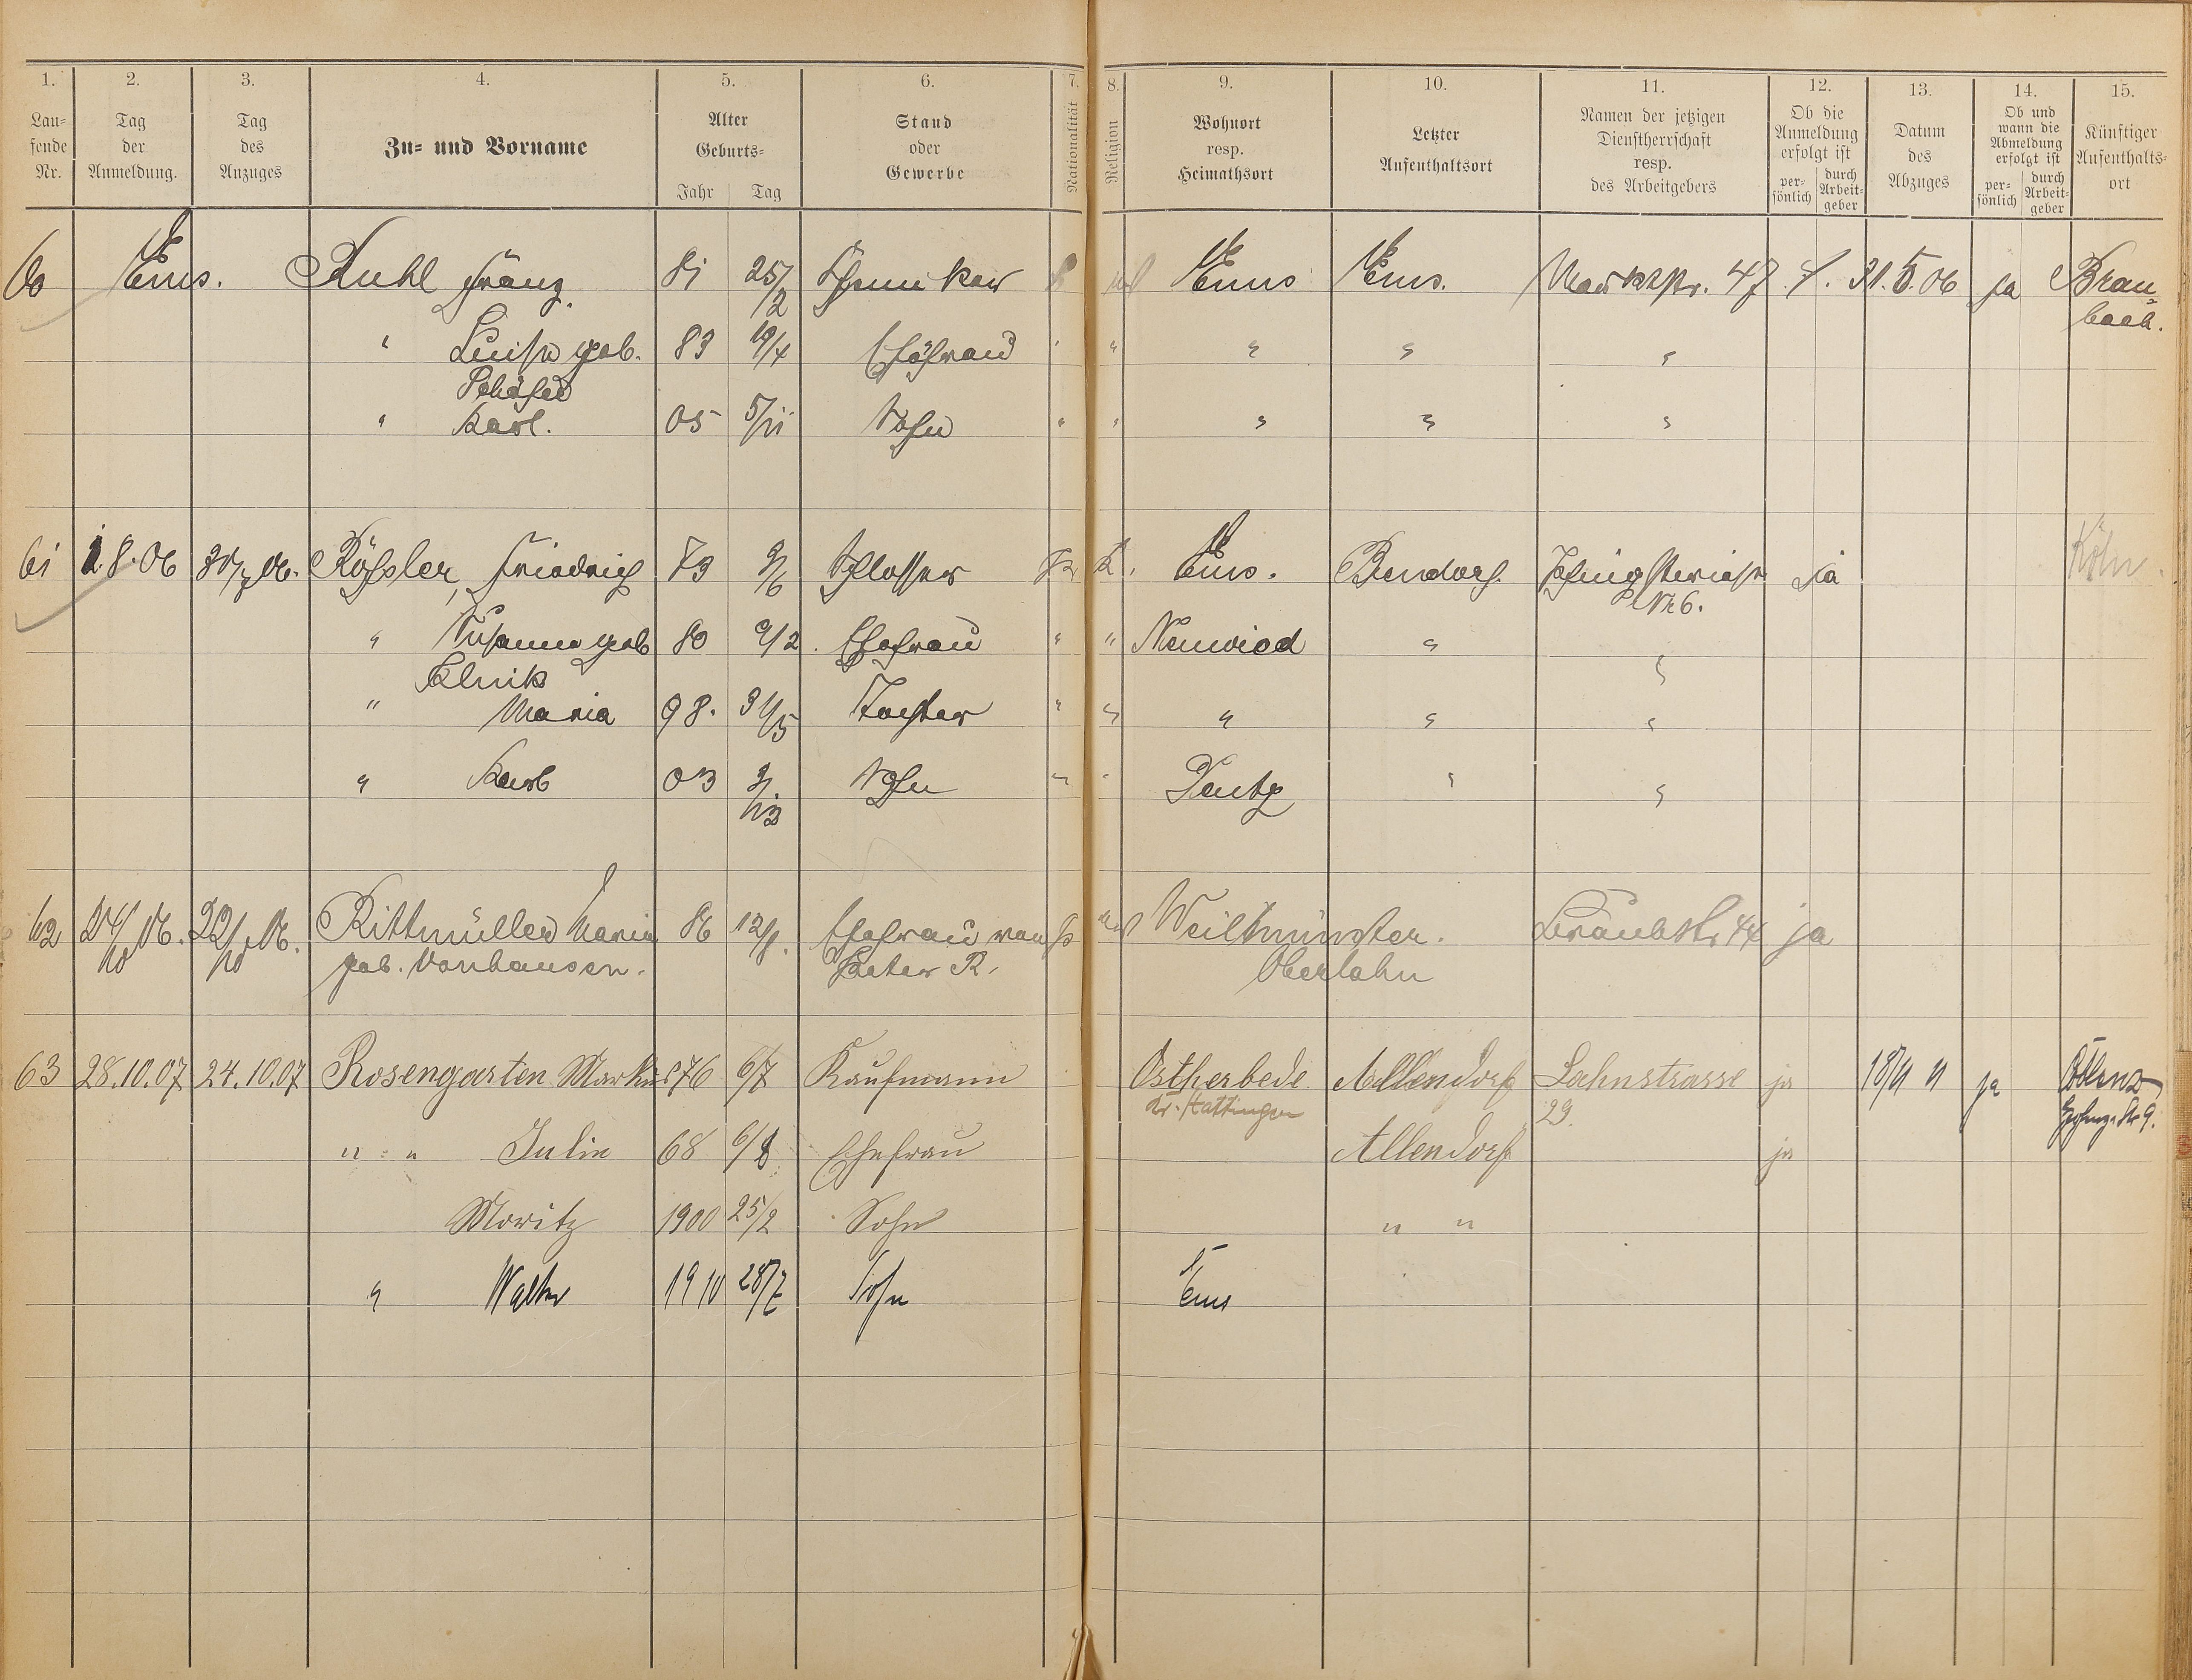 1. 2. 3. 4. 5. 6. 7. 8. 9. 10. 11. 12. 13. 14. 15.
Lau=
fende
Nr.
Tag
der
Anmeldung.
Tag
des
Anzuges
Zu= und Vorname
Alter
Geburts=
Jahr Tag
Stand
oder
Gewerbe
Nationalität
Religion
Wohnort
resp.
Heimathsort
Letzter
Aufenthaltsort
Namen der jetzigen
Dienstherrschaft
resp.
des Arbeitgebers
Ob die
Anmeldung
erfolgt ist
per=
sönlich
durch
Arbeit=
geber
Datum
des
Abzuges
Ob und
wann die
Abmeldung
erfolgt ist
per=
sönlich
durch
Arbeit=
geber
Künftiger
Aufenthalts=
ort
60 Ems. Ruhl Franz 81 25/2 Ems Ems. Marktstr. 47 31.5.06 ja Brau
bach.
" Luise geb. 83 19/4 Ehefrau " " " "
Schäfer
" Karl. 05 5/11 Sohn " " " " "
61 1.8.06 30/7 06. Rößler, Friedrich 73 3/6 Schlosser K. Ems. Bendorf. Pfingstwiese Ja Köln
Nr 6.
" Susanna geb 80 9/2. Ehefrau " " Neuwied " "
Klnik
" Maria 98. 31/5 Tochter " " " " "
" Karl 03 3/12 Sohn " " Deutz " "
62 24/10 06. 22/10 06. Rittmüller Maria 86 12/8. Ehefrau von Weilmünster. Graubstr 44 ja
geb. Vonhausen. Peter R. Oberlahn
63 28.10.07 24.10.07 Rosengarten Markus 76 6/7 Kaufmann Ostherbede Allendorf Lahnstrasse ja 18/4 11 ja Coblenz
Kr. Hattingen 29.
" " Julie 68 6/8 Ehefrau Allendorf ja
Moritz 1900 25/2 Sohn " "
" Walter 1910 28/7 Sohn Ems